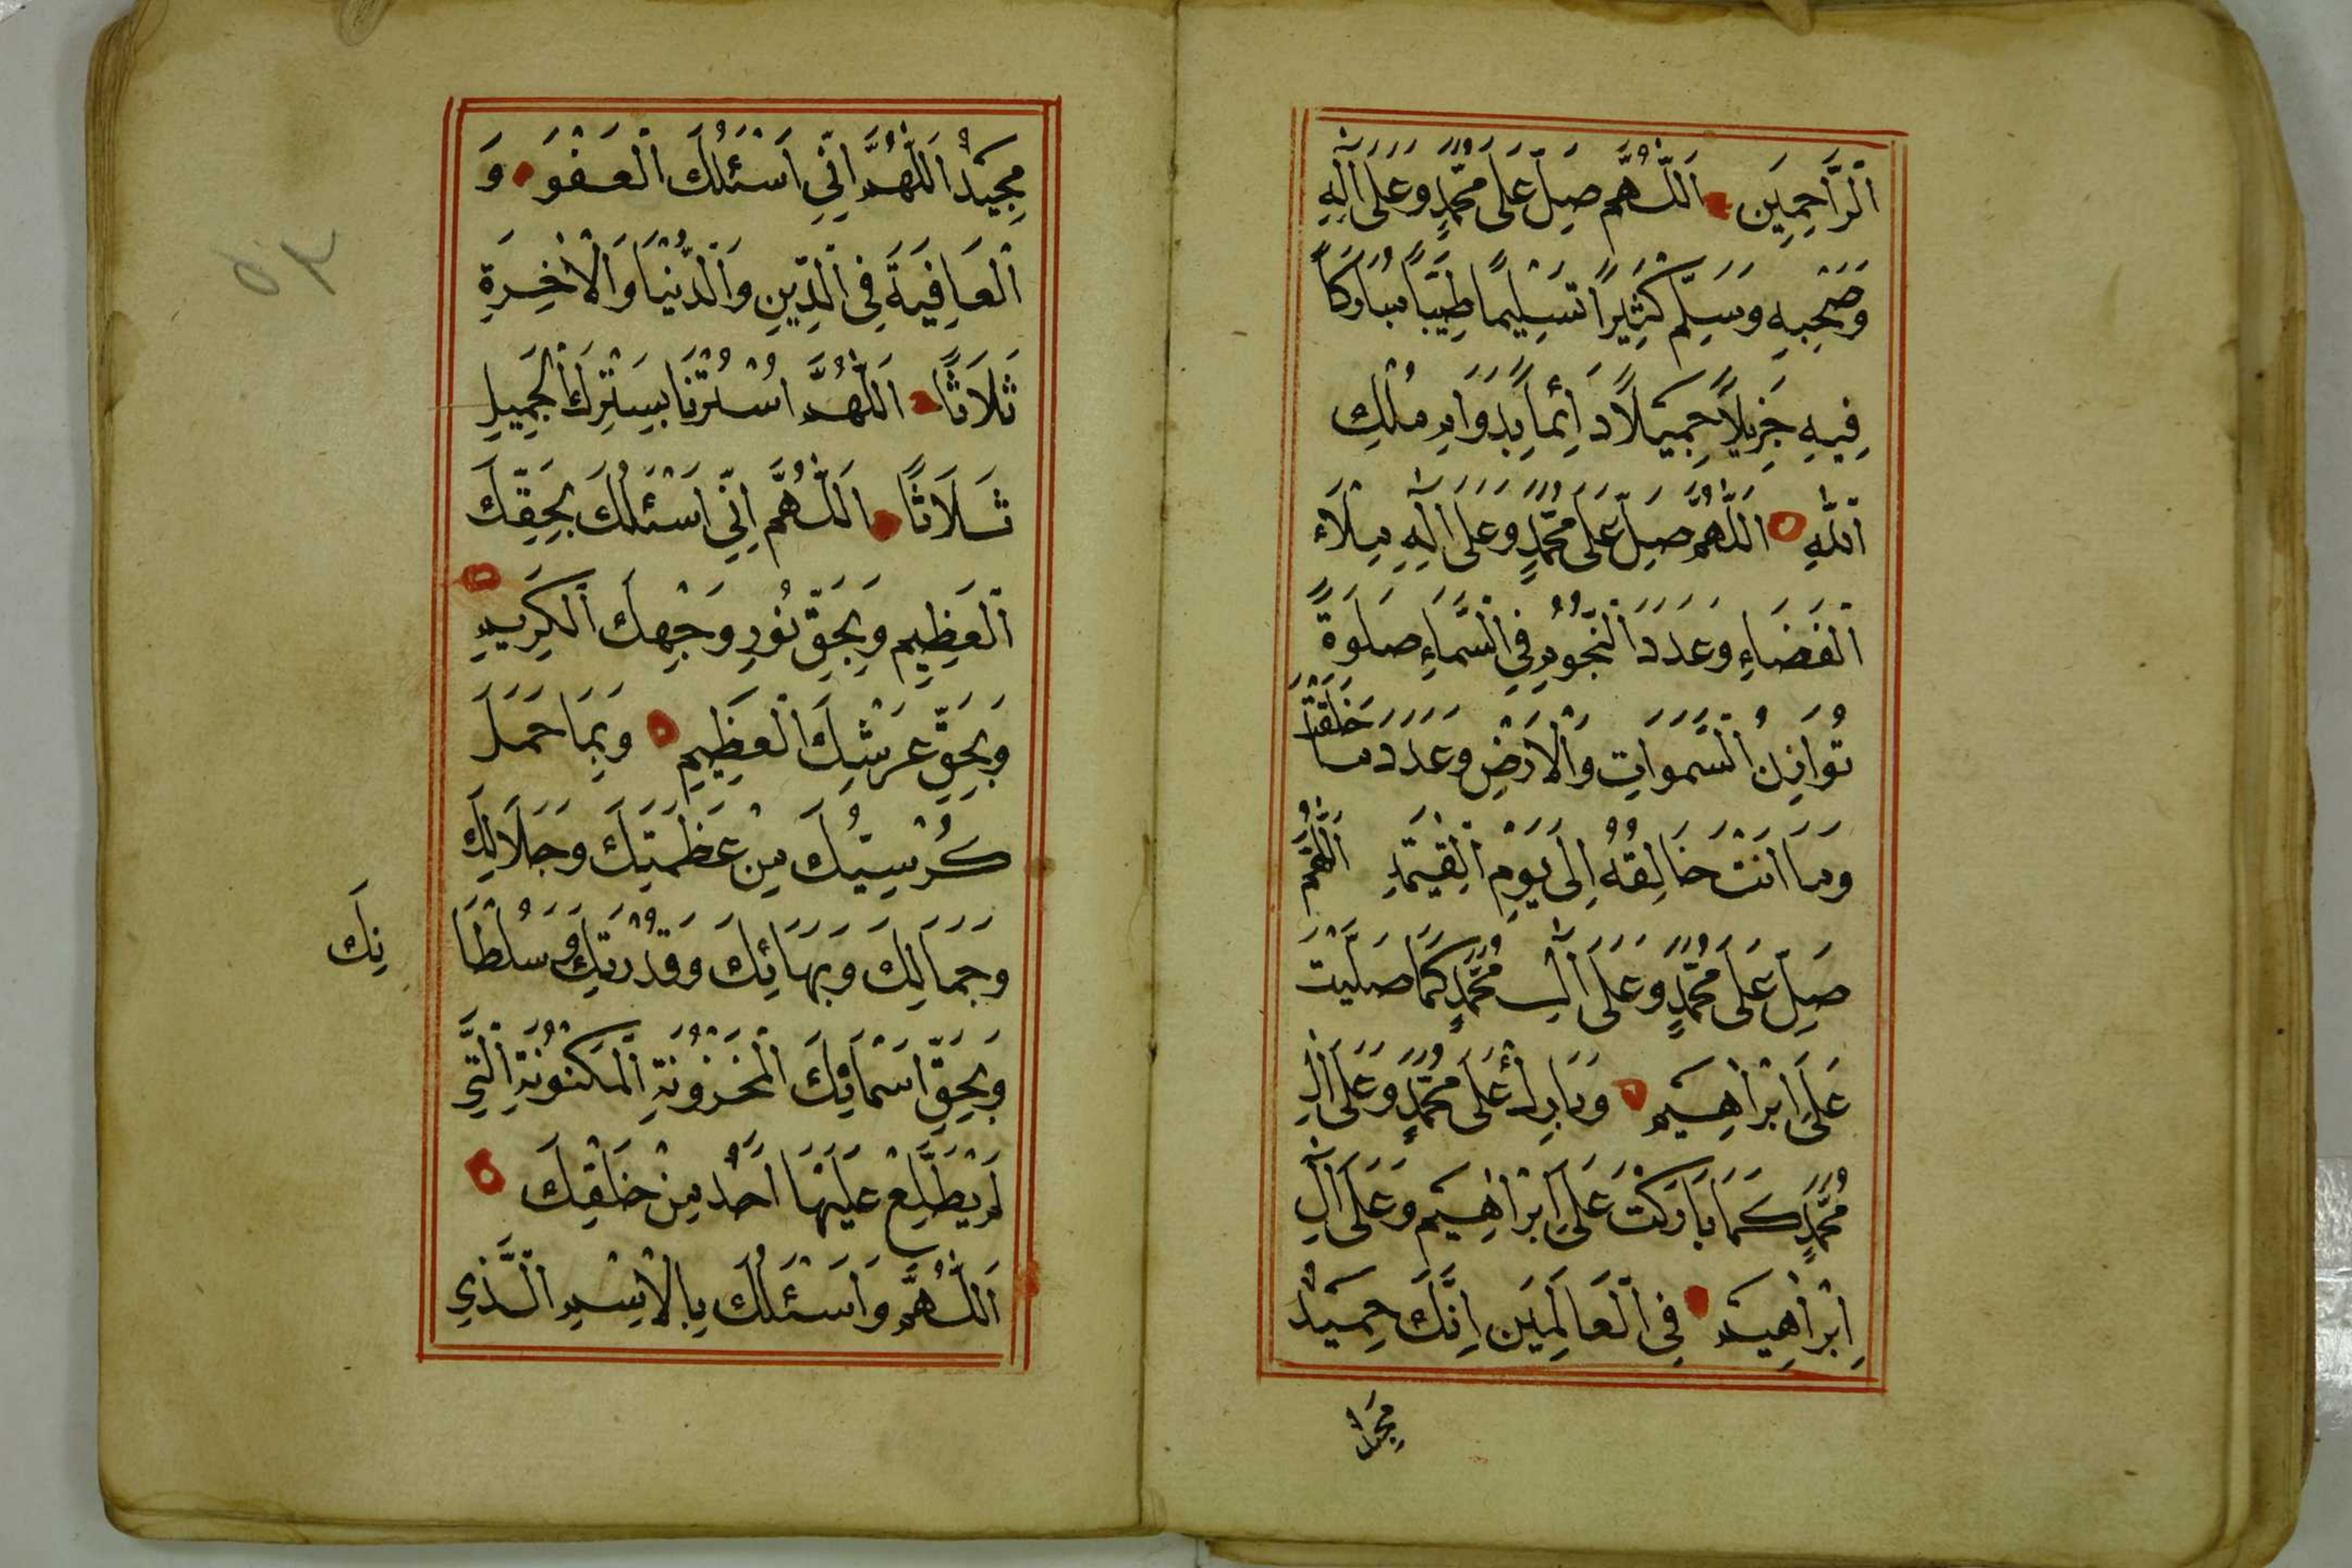 اَلرَّاحِمِينَ اَللّٰهُمَّ صَلِّ عَلَى مُحَمَّدٍ وَعَلَى اٰلِهِ
وَصَحْبِهِ وَسَلِّمْ كَثِيْرًا تَسْلِيمًا طَيِّبًا مُبَارَكًا
فِيهِ جَزِيلًا جَمِيْلًا دَائِمًا بِدَوَامِ مُلْكِ
اَللّٰهِ اَللّٰهُمَّ صَلِّ عَلَى مُحَمَّدٍ وَعَلَى اٰلِهِ مِلَاءَ
اَلْفَضَاءِ وَعَدَدَ اَلنُّجُومِ فِي اَلسَّمَاءِ صَلٰوةً
تُوَازِنُ اَلسَّمٰوَاتِ وَالْاَرْضَ وَعَدَدَ مَا خَلَقْتَ
وَمَا اَنْتَ خَالِقُهُ اِلَى يَوْمِ اَلْقِيٰمَةِ اَللّٰهُمَّ
صَلِّ عَلَى مُحَمَّدٍ وَعَلَى اٰلِ مُحَمَّدٍ كَمَا صَلَّيْتَ
عَلَى اِبْرَاهِيْمَ وَبَارِكْ عَلَى مُحَمَّدٍ وَعَلَى اٰلِ
مُحَمَّدٍ كَمَا بَارَكْتَ عَلَى اِبْرَاهِيْمَ وَعَلَى اٰلِ
اِبْرَاهِيْمَ فِي اَلْعَالَمِيْنَ اِنَّكَ حَمِيْدٌ
مَجِيْدٌ
مَجِيْدٌ اَللّٰهُمَّ اِنِّي اَسْئَلُكَ اَلْعَفْوَ وَ
اَلْعَافِيَةَ فِي اَلدِّيْنِ وَالدُّنْيَا وَالْاٰخِرَةِ
ثَلَاثًا اَللّٰهُمَّ اسْتُرْنَا بِسِتْرِكَ اَلْجَمِيلِ
ثَلَاثًا اَللّٰهُمَّ اِنِّي اَسْئَلُكَ بِحَقِّكَ
اَلْعَظِيمِ وَبِحَقِّ نُورِ وَجْهِكَ اَلْكَرِيمِ
وَبِحَقِّ عَرْشِكَ اَلْعَظِيمِ وَبِمَا حَمَلَ
كُرْسِيُّكَ مِنْ عَظَمَتِكَ وَجَلَالِكَ
وَجَمَالِكَ وَبَهَائِكَ وَقُدْرَتِكَ وَسُلْطَا
نِكَ
وَبِحَقِّ اَسْمَائِكَ اَلْمَخْزُونَةِ اَلْمَكْنُونَةِ اَلَّتِي
لَمْ يَطَّلِعْ عَلَيْهَا اَحَدٌ مِنْ خَلْقِكَ
اَللّٰهُمَّ وَاَسْئَلُكَ بِالْاِسْمِ اَلَّذِي